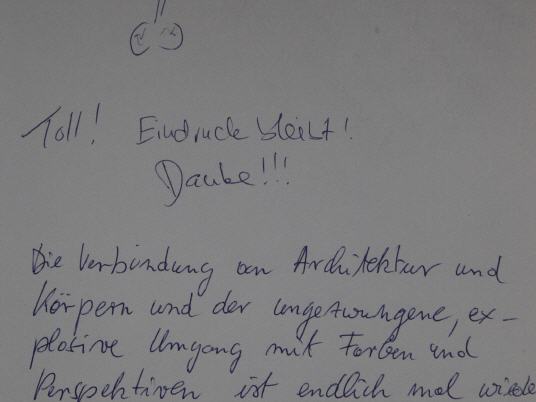 Toll! Eindruck bleibt!
Danke!!!
Die Verbindung von Architektur und
Körpern und der ungezwungene, ex-
plosive Umgang mit Farben und
Perspektiven ist endlich mal wieder